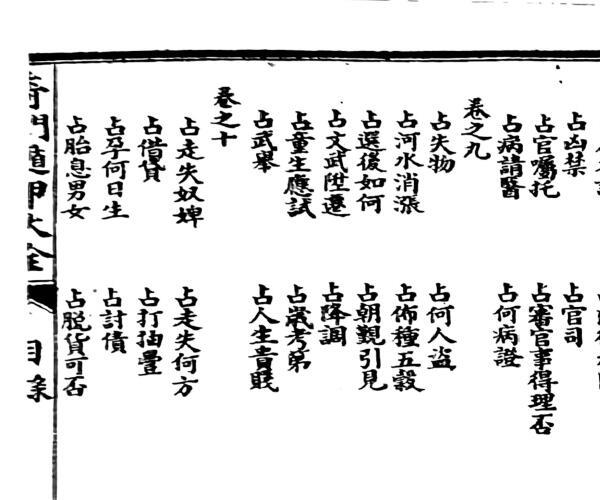 占凶禁 占官司
占官囑托 占審官事得理否
占病請醫 占何病證
卷之九
占失物 占何人盜
占河水消漲 占佈種五穀
占選後如何 占朝覲引見
占文武陞遷 占降調
占童生應試 占歲考第
占武舉 占人生貴賤
卷之十
占走失奴婢 占走失何方
占借貸 占打抽豐
占孕何日生 占討債
占胎息男女 占脫貨可否
奇門遁甲大全 目錄